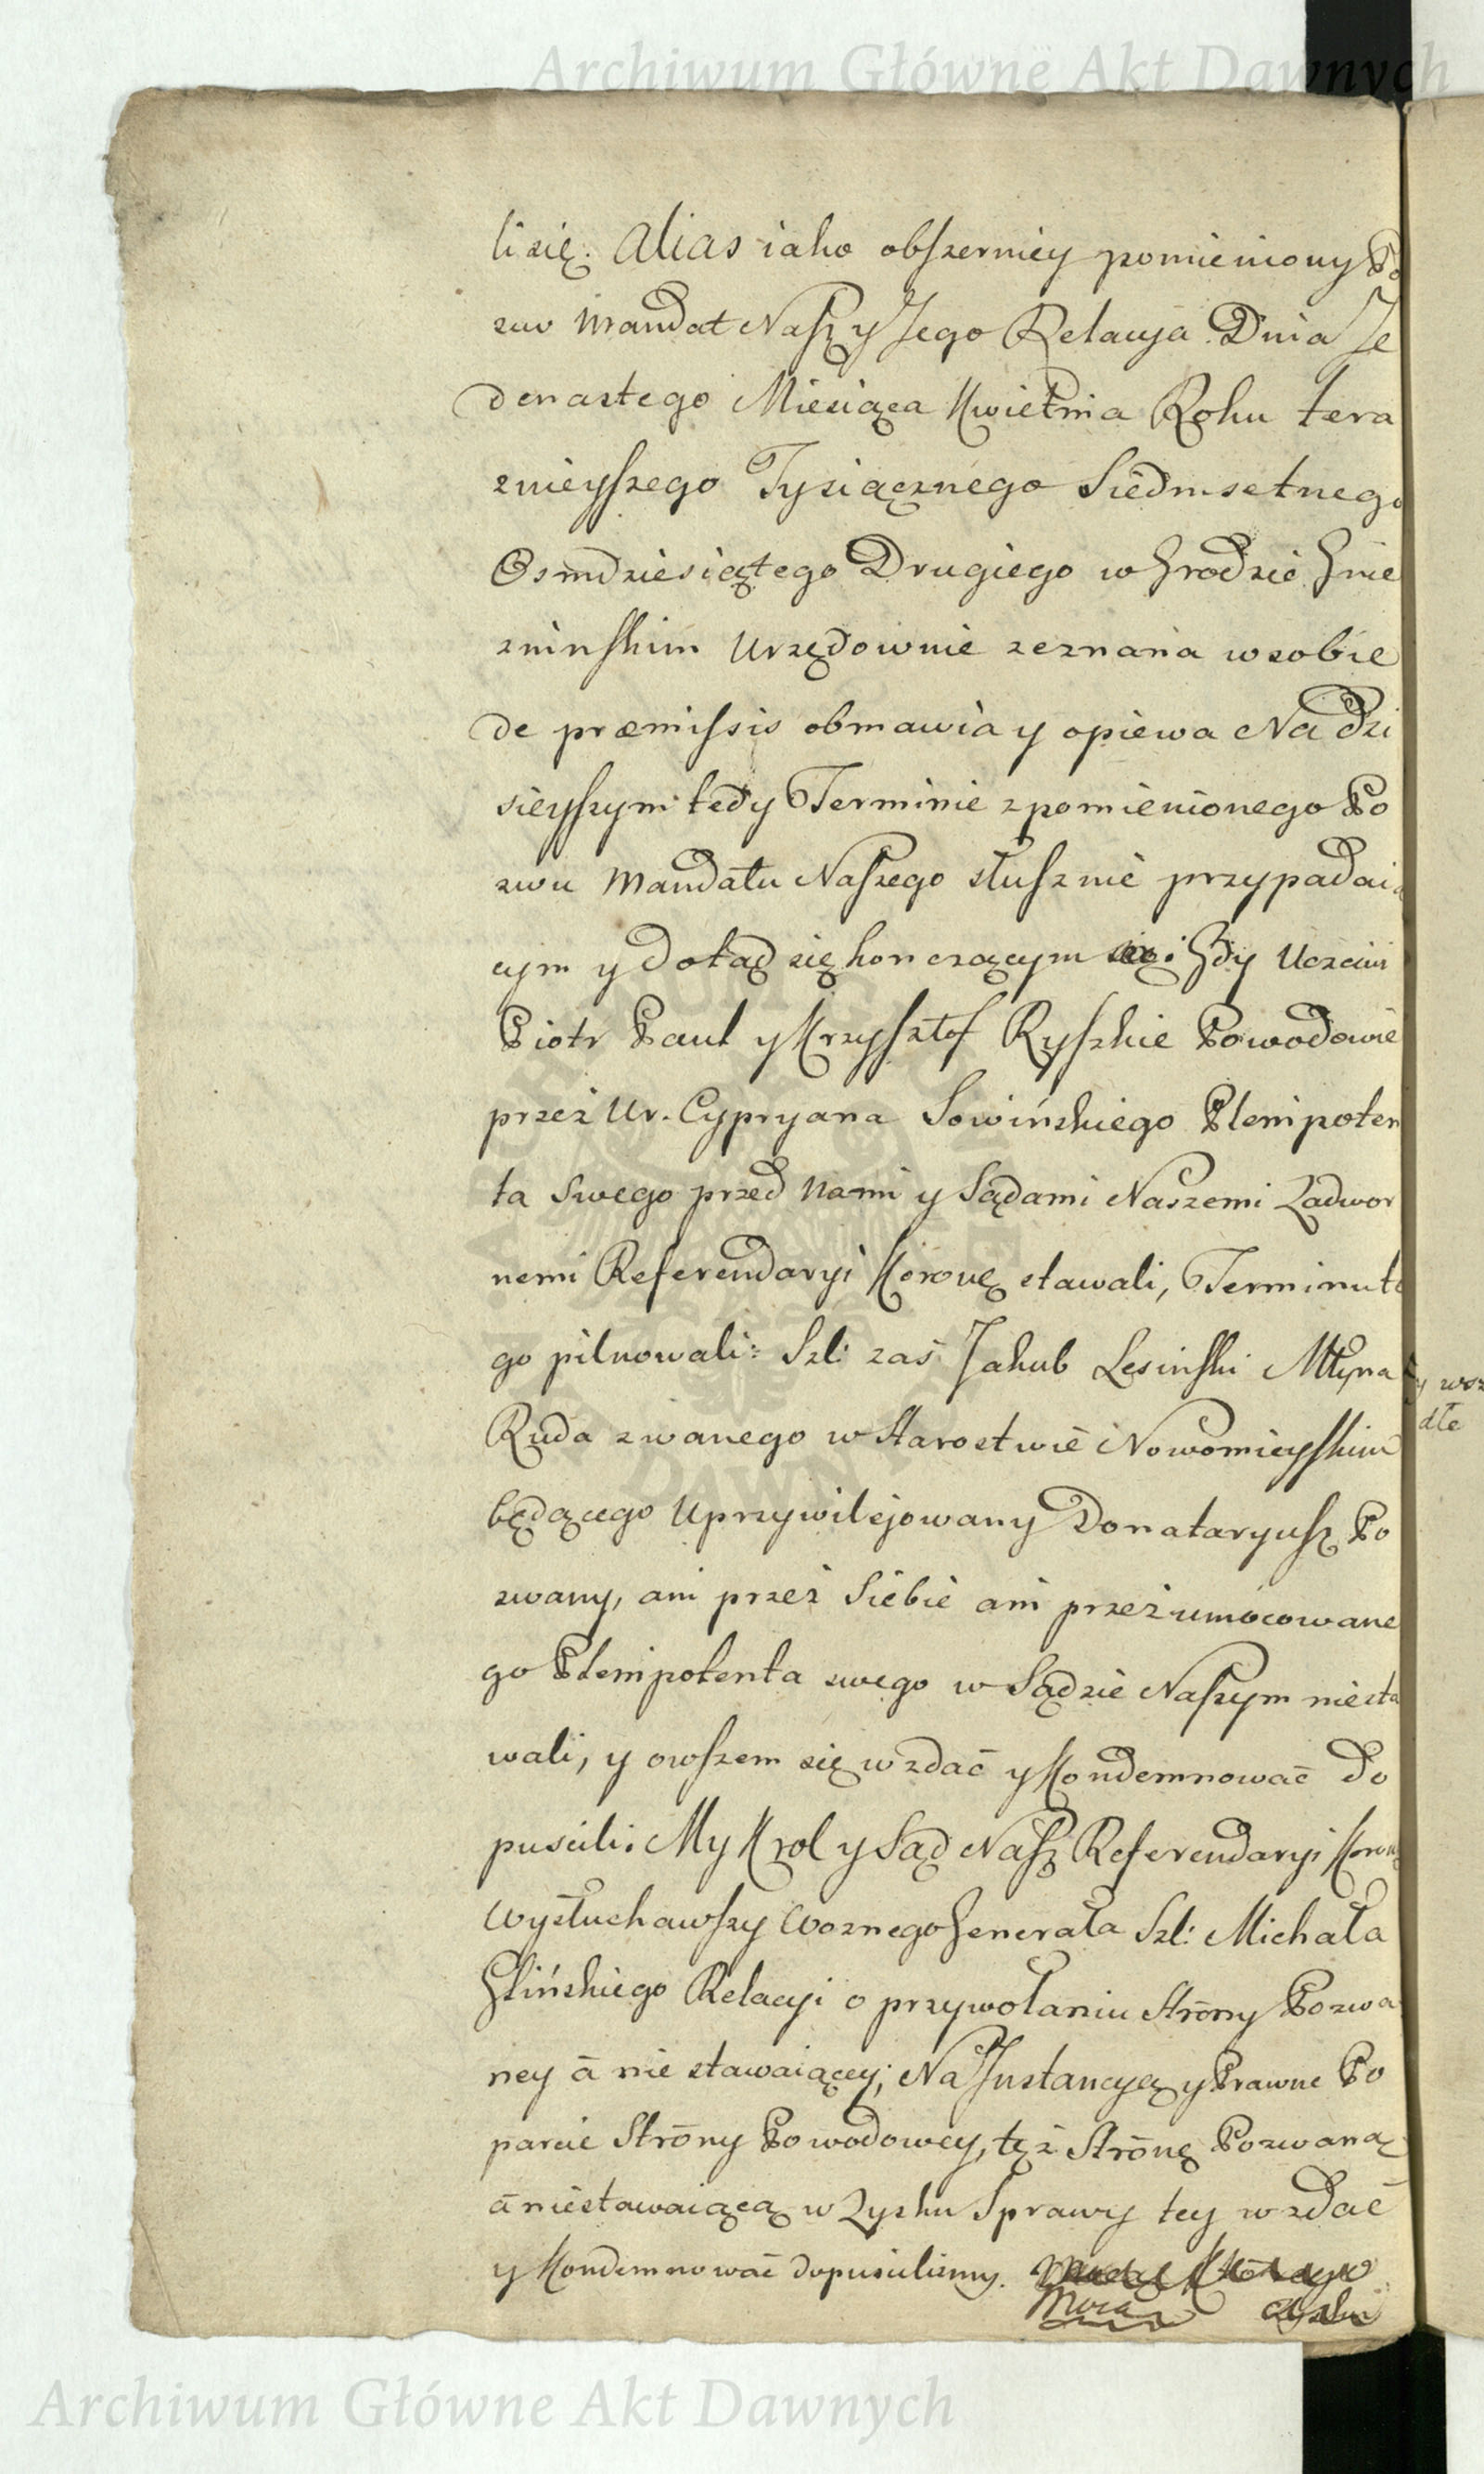 Archiwum Główne Akt Dawnych
li się. Alias iako obszerniey pomieniony Po
zew Mandat Nasz y Jego Relacya Dnia Je
denastego Miesiąca Kwietnia Roku tera
znieyszego Tysiącznego Siedmsetnego
Osmdziesiątego Drugiego w Grodzie Gnie
zninskim Urzędownie zeznana w sobie
de præmissis obmawia y opiewa Na dzi
sieyszym tedy Terminie z pomienionego Po
zwu Mandatu Naszego słusznie przypadaią
cym y dotąd się konczącym Gdy Uczciwi
Piotr Paul y Krzysztof Ryszkie Powodowie
przez Ur. Cypryana Sowińskiego Plenipoten
ta Swego przed Nami y Sądami Naszemi Zadwor
nemi Referendaryi Koronę stawali, Terminu te
go pilnowali: Szl: zaś Jakub Lesinski Młyna
Ruda zwanego w Starostwie Nowomieyskim
będącego Uprzywilejowany Donataryusz Po
zwany, ani przez Siebie ani przez umocowane
go Plenipotenta swego w Sądzie Naszym niesta
wali, y owszem się wzdać y Kondemnować do
puscili: My Krol y Sąd Nasz Referendaryi Koronę
Wysłuchawszy Woznego Generała Szl: Michała
Glińskiego Relacyi o przywołaniu Strōny Pozwa
ney ā nie stawaiącey; Na Instancyą y Prawne Po
parcie Strōny Powodowey, tęż Strōnę Pozwaną
ā niestawaiącą w Zysku Sprawy tey wzdać
y Kondemnować dopuscilismy.
y wsz
dłe
Archiwum Główne Akt Dawnych